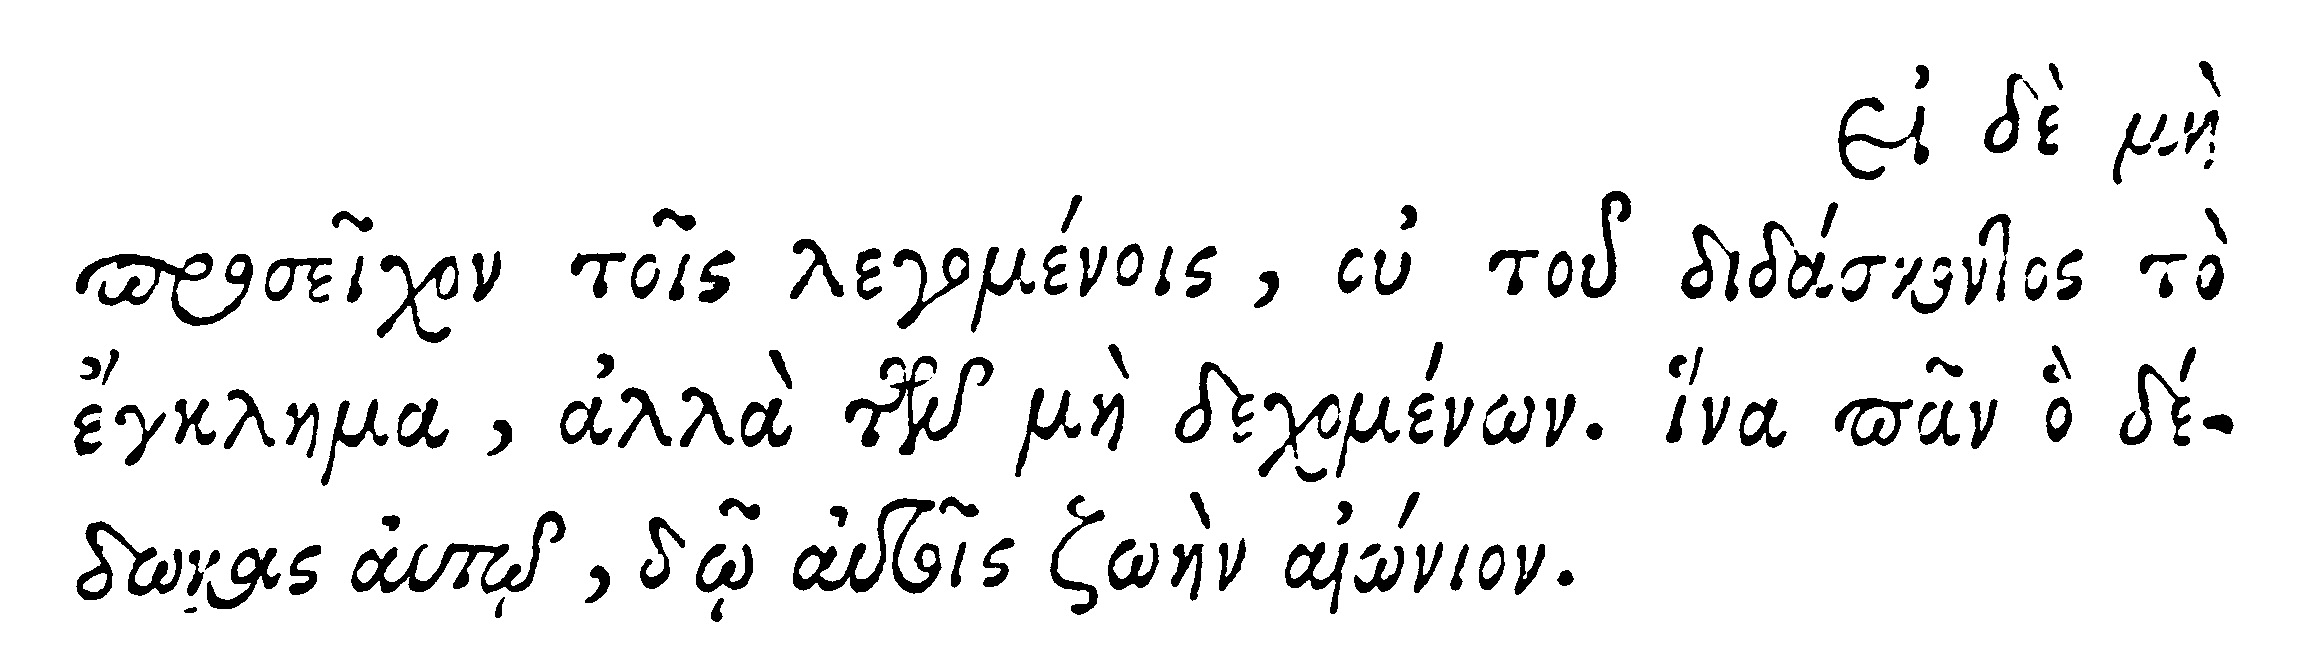 εἰ δὲ μὴ
προσεῖχον τοῖς λεγομένοις, οὐ τοῦ διδάσκοντος τὸ
ἔγκλημα, ἀλλὰ τῶν μὴ δεχομένων. ἵνα πᾶν ὃ δέ-
δωκας αὐτῷ, δῷ αὐτοῖς ζωὴν αἰώνιον.